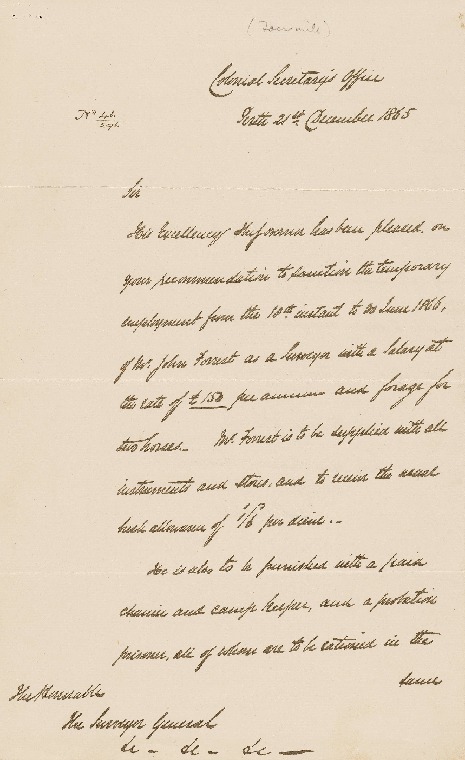 (Facsimile)
Colonial Secretary's Office
Perth 21st December 1865
No.
Sir
His Excellency the Governor has been pleased, on
your recommendation to sanction the temporary
employment from the 18th instant to 30 June 1866,
of Mr. John Forrest as a Surveyor with a Salary at
the rate of £150 per annum and forage for
two horses. Mr Forrest is to be supplied with all
instruments and stores, and to receive the usual
allowance of 1/6 per diem.
He is also to be furnished with a paid
chainman and camp keeper, and a probation
prisoner, all of whom are to be rationed in the
same
The Honorable
The Surveyor General
&c - &c - &c -